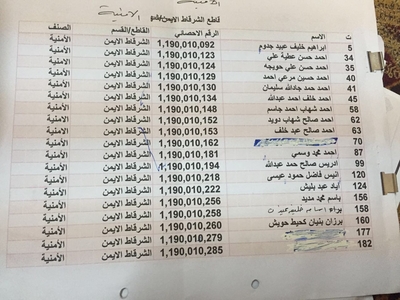 الامنية
قاطع الشرقاط الايمن
ت الاسم الرقم الاحصائي القاطع/القسم الصنف
5 ابراهيم خليف عبيد جدوم 1,190,010,092 الشرقاط الايمن الأمنية
34 احمد حسن عطية علي 1,190,010,123 الشرقاط الايمن الأمنية
35 احمد حسن علي حويجه 1,190,010,124 الشرقاط الايمن الأمنية
40 احمد حسين مرعي احمد 1,190,010,129 الشرقاط الايمن الأمنية
41 احمد حماد جادالله سليمان 1,190,010,130 الشرقاط الايمن الأمنية
45 احمد خلف احمد عبدالله 1,190,010,134 الشرقاط الايمن الأمنية
58 احمد شهاب احمد جاسم 1,190,010,148 الشرقاط الايمن الأمنية
62 احمد صالح شهاب دويد 1,190,010,152 الشرقاط الايمن الأمنية
63 احمد صالح عبد خلف 1,190,010,153 الشرقاط الايمن الأمنية
70 1,190,010,162 الشرقاط الايمن الأمنية
87 احمد محمد وسمي 1,190,010,181 الشرقاط الايمن الأمنية
99 ادريس صالح حمد عبدالله 1,190,010,194 الشرقاط الايمن الأمنية
120 انيس فاضل حمود عيسى 1,190,010,218 الشرقاط الايمن الأمنية
124 اياد عبد بليش 1,190,010,222 الشرقاط الايمن الأمنية
156 باسم محمد مديد 1,190,010,256 الشرقاط الايمن الأمنية
158 براء 1,190,010,258 الشرقاط الايمن الأمنية
160 برزان بنيان كحيط حويش 1,190,010,260 الشرقاط الايمن الأمنية
177 1,190,010,279 الشرقاط الايمن الأمنية
182 1,190,010,285 الشرقاط الايمن الأمنية